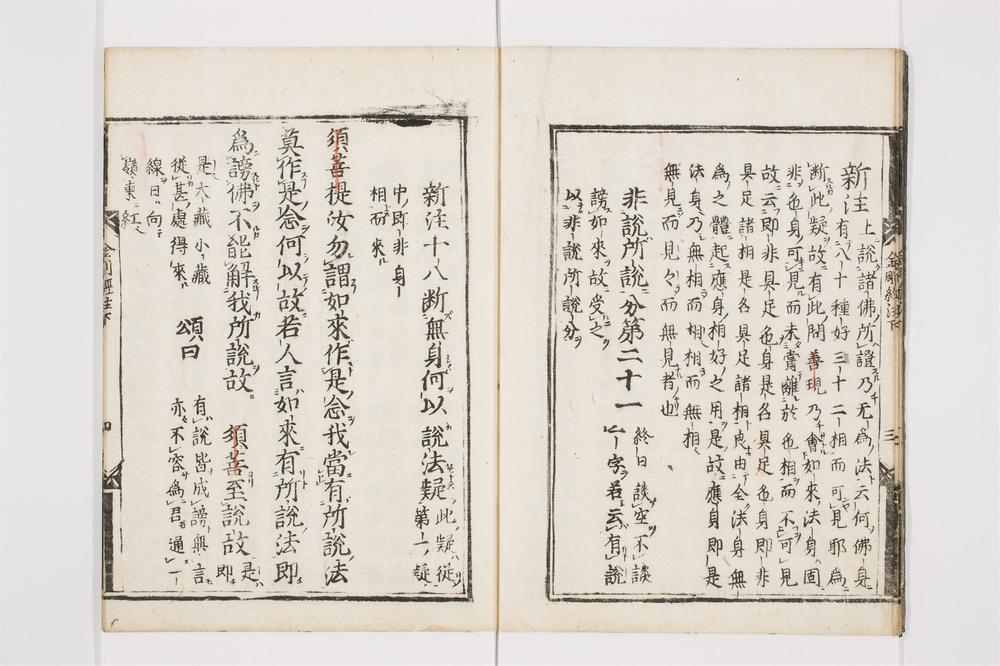 新注上説諸佛所證乃无爲法云何佛身
有八十種好三十二相而可見耶爲
断此疑故有此問善現乃會如來法身固
非色身可見而未嘗離於色相而不可見
故云即非具足色身是名具足色身即非
具足諸相是名具足諸相也由全法身無
爲之體起應身相好之用是故應身即是
法身乃無相而相相而無相
無見而見々而無見者也
非説所説分第二十一
終日談空不談
一字若云有説
謗如來故受之
以非説所説分
新注十八断無身何以説法疑
此疑從
第十七疑
中即非身
相而來
須菩提汝勿謂如來作是念我當有所説法
莫作是念何以故若人言如來有所説法即
爲謗佛不能解我所説故
須菩至説故
是即
是大藏小藏
從甚處得來
頌曰
有説皆成謗無言
亦不容爲君通一
線日向
嶺東紅
金剛經注下
三
四